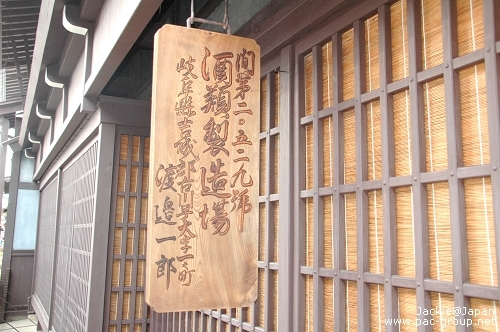 間第二〇五二九號
酒類製造場
岐阜縣吉城郡古川町大字壱之町
渡邉一郎
Jackie@Japan
www.pac-group.net